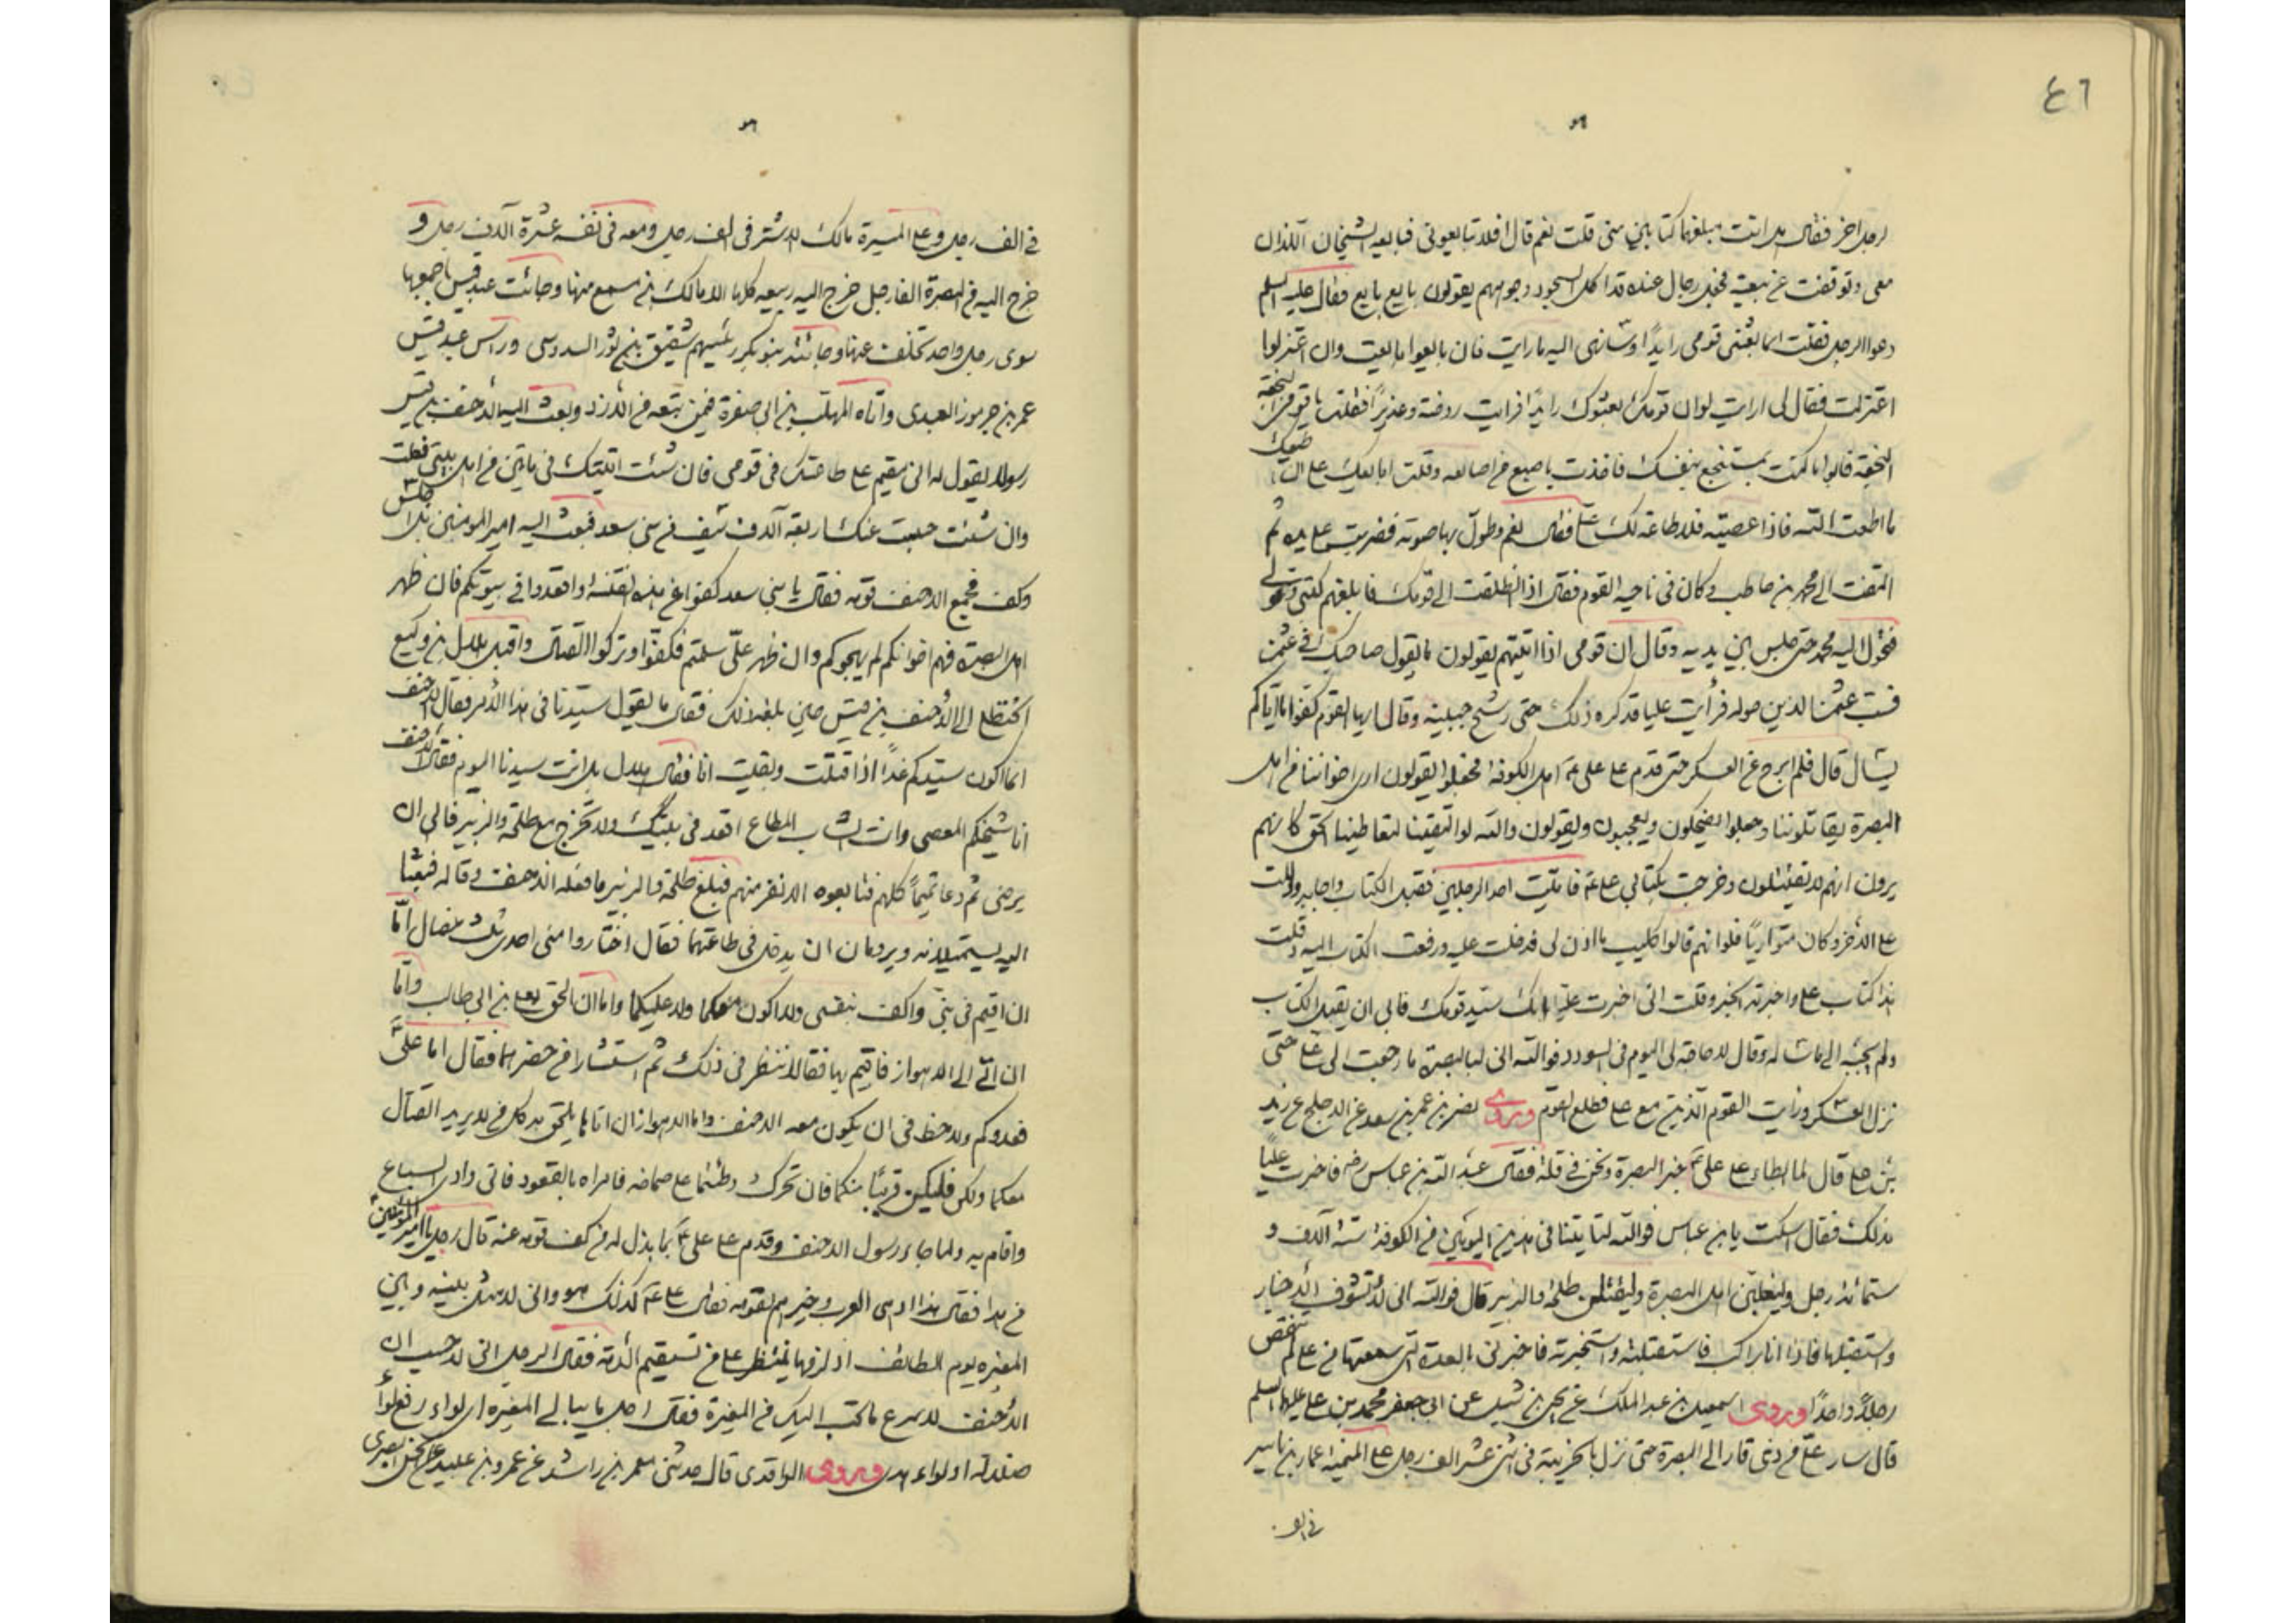 ٤٦
لرجل اخر فقال هل انت مبلغها كتابين مني قلت نعم قال افلا تبايعوني فبايعه الشيخان اللذان
معي وتوقفت عن بيعته فجعل رجال عنده قد اكل السجود وجوههم يقولون بايع بايع فقال عليه السلم
دعوا الرجل فقلت انما بعثني قومي رايدًا وسانهى اليه ما رايت فان بايعوا بايعت وان اعتزلوا
اعتزلت فقال لي ارايت لو ان قومك بعثوك رايدًا فرايت روضة وغديرًا فقلت يا قوم النجعة
النجعة فابوا ما كنت بمستنجع بنفسك فاخذت باصبع من اصابعه وقلت ابايعك على ان اطيعك
ما اطعت الله فاذا عصيته فلا طاعة لك علي فقال نعم وطول بها صوته فضربت على يده ثم
التفت الى محمد بن حاطب وكان في ناحيه القوم فقال اذا انطلقت الى قومك فابلغهم كتبي وقولي
فتحول اليه محمد حتى جلس بين يديه وقال ان قومي اذا اتيتهم يقولون ما يقول صاحبك في عثمن
فسب عثمن الذين حوله فرأيت عليا قد كره ذلك حتى رشح جبينه وقال ايها القوم كفوا ما اياكم
يسال قال فلم ابرح عن العسكر حتى قدم على علي ع اهل الكوفة فجعلوا يقولون ارى اخواننا من اهل
البصرة يقاتلوننا وجعلوا يضحكون ويعجبون ويقولون والله لو التقينا لتعاطينا الحق كانهم
يرون انهم لا يقتتلون وخرجت بكتابي علي ع فاتيت احد الرجلين فقبل الكتاب واجابه ودللت
على الأخر وكان متواريًا فلو انهم قالوا كليب ما اذن لي فدخلت عليه ورفعت الكتاب اليه وقلت
هذا كتاب علي واخبرته الخبر وقلت اني اخبرت عليا انك سيد قومك فابى ان يقبل الكتاب
ولم يجبه الى ما ساله وقال لا حاجة لي اليوم في السودد فوالله اني لبالبصرة ما رجعت الى علي حتى
نزل العسكر ورأيت القوم الذين مع علي فطلع القوم وروى نصر بن عمر بن سعد عن الاجلح عن زيد
بن علي قال لما ابطاء على علي ع خبر البصرة ونحن في فلة فقال عبد الله بن عباس رضه فاخبرت عليًا
بذلك فقال اسكت يا بن عباس فوالله لتاتينا في هذين اليومين من الكوفة ستة آلاف و
ستمائة رجل وليغلبن اهل البصرة وليقتلن طلحة والزبير قال فوالله اني لأتشوف الأخبار
واستقبلها فاذا انا براكب فاستقبلته واستخبرته فاخبرني بالعدة التي سمعتها من علي لم تنقص
رجلاً واحدًا وروى اسمعيل بن عبد الملك عن يحيى بن شبل عن ابي جعفر محمد بن علي عليهما السلم
قال سار علي من ذي قار الى البصرة حتى نزل بالخريبة في اثني عشر الف رجل على الميمنة عمار بن ياسر
في الف
في الف رجل وعلى الميسرة مالك الاشتر في الف رجل ومعه في نفسه عشرة آلاف رجل و
خرج اليه من البصرة الفا رجل خرج اليه ربيعه كلها الا مالك بن مسمع منها وجائت عبد قيس باجمعها
سوى رجل واحد تخلف عنها وجائته بنو بكر رئيسهم شقيق بن ثور السدوسي وراس عبد قيس
عمر بن جرموز العبدي واتاه المهلب بن ابي صفرة فيمن تبعه من الأزد وبعث اليه الأحنف بن قيس
رسولا يقول له اني مقيم على طاعتك في قومي فان شئت اتيتك في ماتين من اهل بيتي فعلت
وان شئت حبست عنك اربعة آلاف سيف من بني سعد فبعث اليه امير المومنين بل احبس
وكف فجمع الاحنف قومه فقال يا بني سعد كفوا عن هذه الفتنة واقعدوا في بيوتكم فان ظهر
اهل البصرة فهم اخوانكم لم يهيجوكم وان ظهر علي سلمتم فكفوا وتركوا القتال واقبل هلال بن وكيع
الحنظلي الى الأحنف بن قيس حين بلغه ذلك فقال ما يقول سيدنا في هذا الأمر فقال الاحنف
انما اكون سيدكم غدًا اذا قتلت وبقيت انا فقال هلال بل انت سيدنا اليوم فقال الاحنف
انا شيخكم المعصي وانت الشاب المطاع اقعد في بيتك ولا تخرج مع طلحة والزبير فابى ان
يرضى ثم دعا تميمًا كلهم فتابعوه الا نفر منهم فبلغ طلحة والزبير ما فعله الاحنف وقاله فبعثا
اليه يستميلانه ويريدان ان يدخل في طاعتهما فقال اختاروا مني احدى ثلث خصال امّا
ان اقيم في بيتي واكف بنفسي ولا اكون معكما ولا عليكما واما ان الحق بعلي بن ابي طالب وامّا
ان اتي الى الاهواز فاقيم بها فقالا ننظر في ذلك ثم استشارا من حضرهما فقال اما علي ع
فعدوكم ولا حظ في ان يكون معه الاحنف واما الاهواز ان اتاها يلحق به كل من لا يريد القتال
معكما ولكن فليكن قريبًا منكما فان تحرك وطئتما على صماخه فامراه بالقعود فاتى وادي السباع
واقام به ولما جاء رسول الاحنف وقدم على علي ع بما بذل له من كف قومه عنه قال رجل يا امير المؤمنين
من هذا فقال هذا ادهى العرب وخيرهم لقومه فقال علي ع كذلك هو واني لامثل بينه وبين
المغيره يوم الطائف اذ لزمها ينتظر على من تستقيم الأمة فقال الرجل اني لاحسب ان
الأحنف لاسرع ما كتب اليك من المغيرة فقال اجل ما يبالي المغيره اي لواء رفع لواء
ضلالة او لواء هدى وروى الواقدي قال حدثني معمر بن راشد عن عمرو بن عبيد عن الحسن البصري